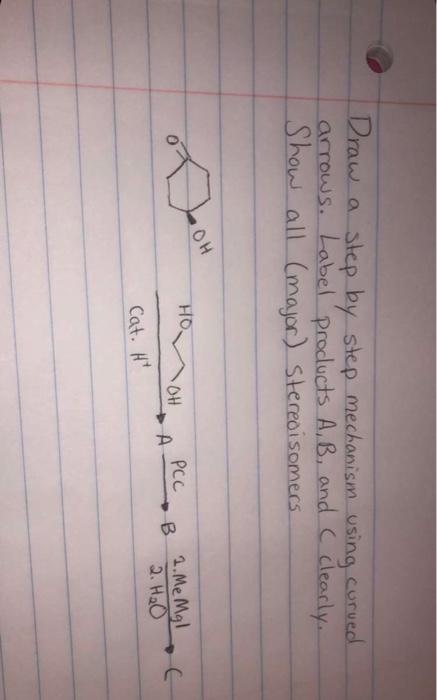 Draw a step by step mechanism using curved
arrows. Label products A, B, and C clearly.
Show all (major) Stereoisomers
O OH
HO OH
Cat. H⁺
A
PCC
B
1. MeMgI
2. H₂O
C